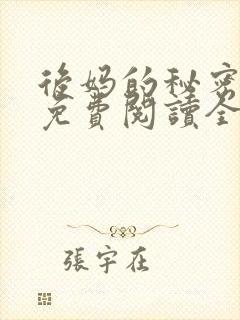 後媽的秘密
免費閱讀全
張宇在